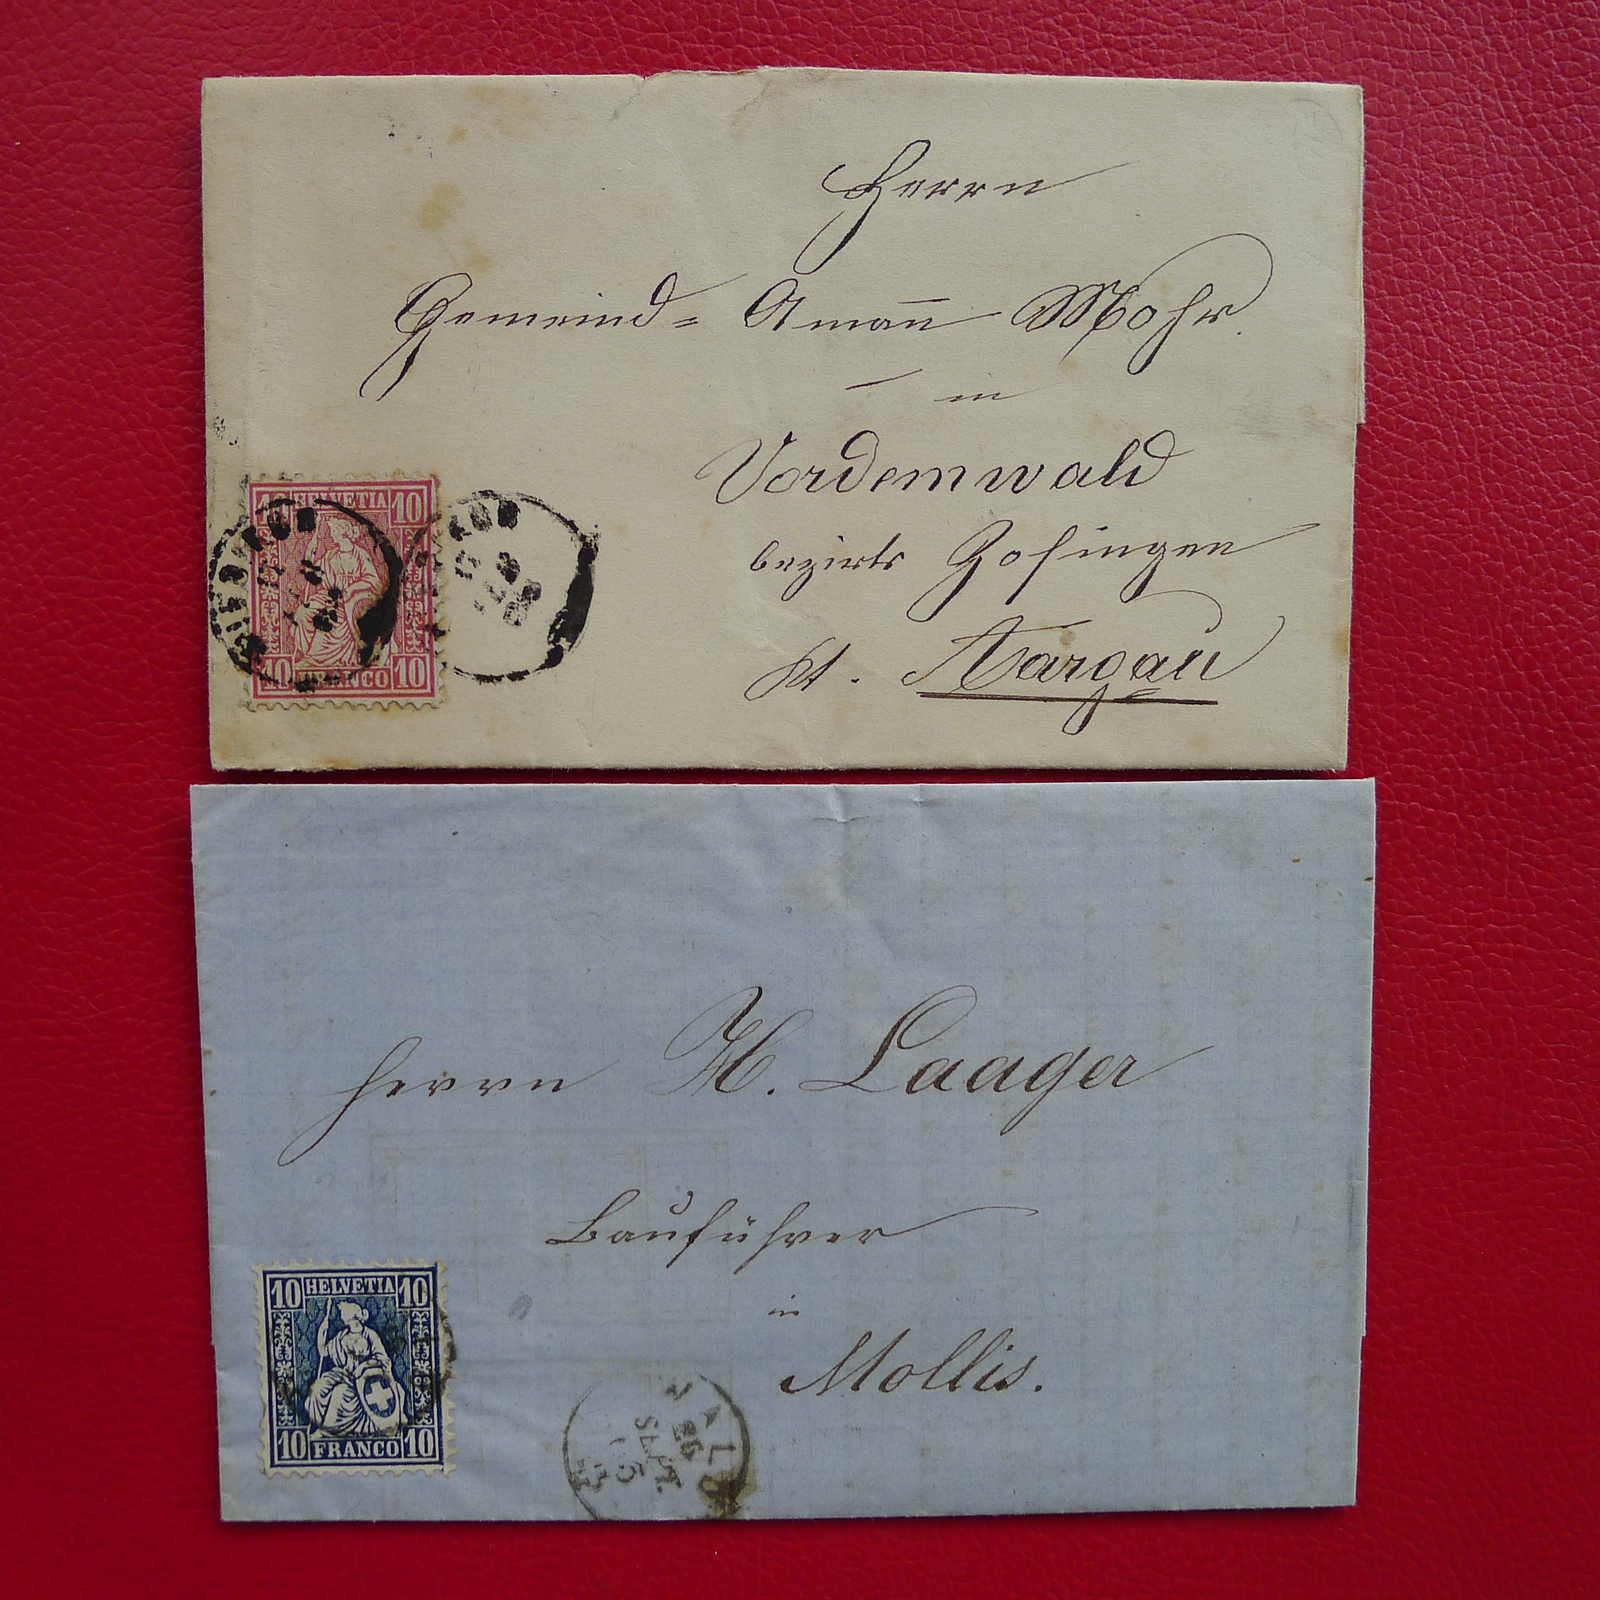 Herrn
Gemeind= Amañ Mohr.
in
Vordemwald
bezirks Zofingen
Kt. Aargau
10 HELVETIA 10
10 FRANCO 10
Herrn H. Laager
Bauführer
in
Mollis.
10 HELVETIA 10
10 FRANCO 10
26
SEPT.
65